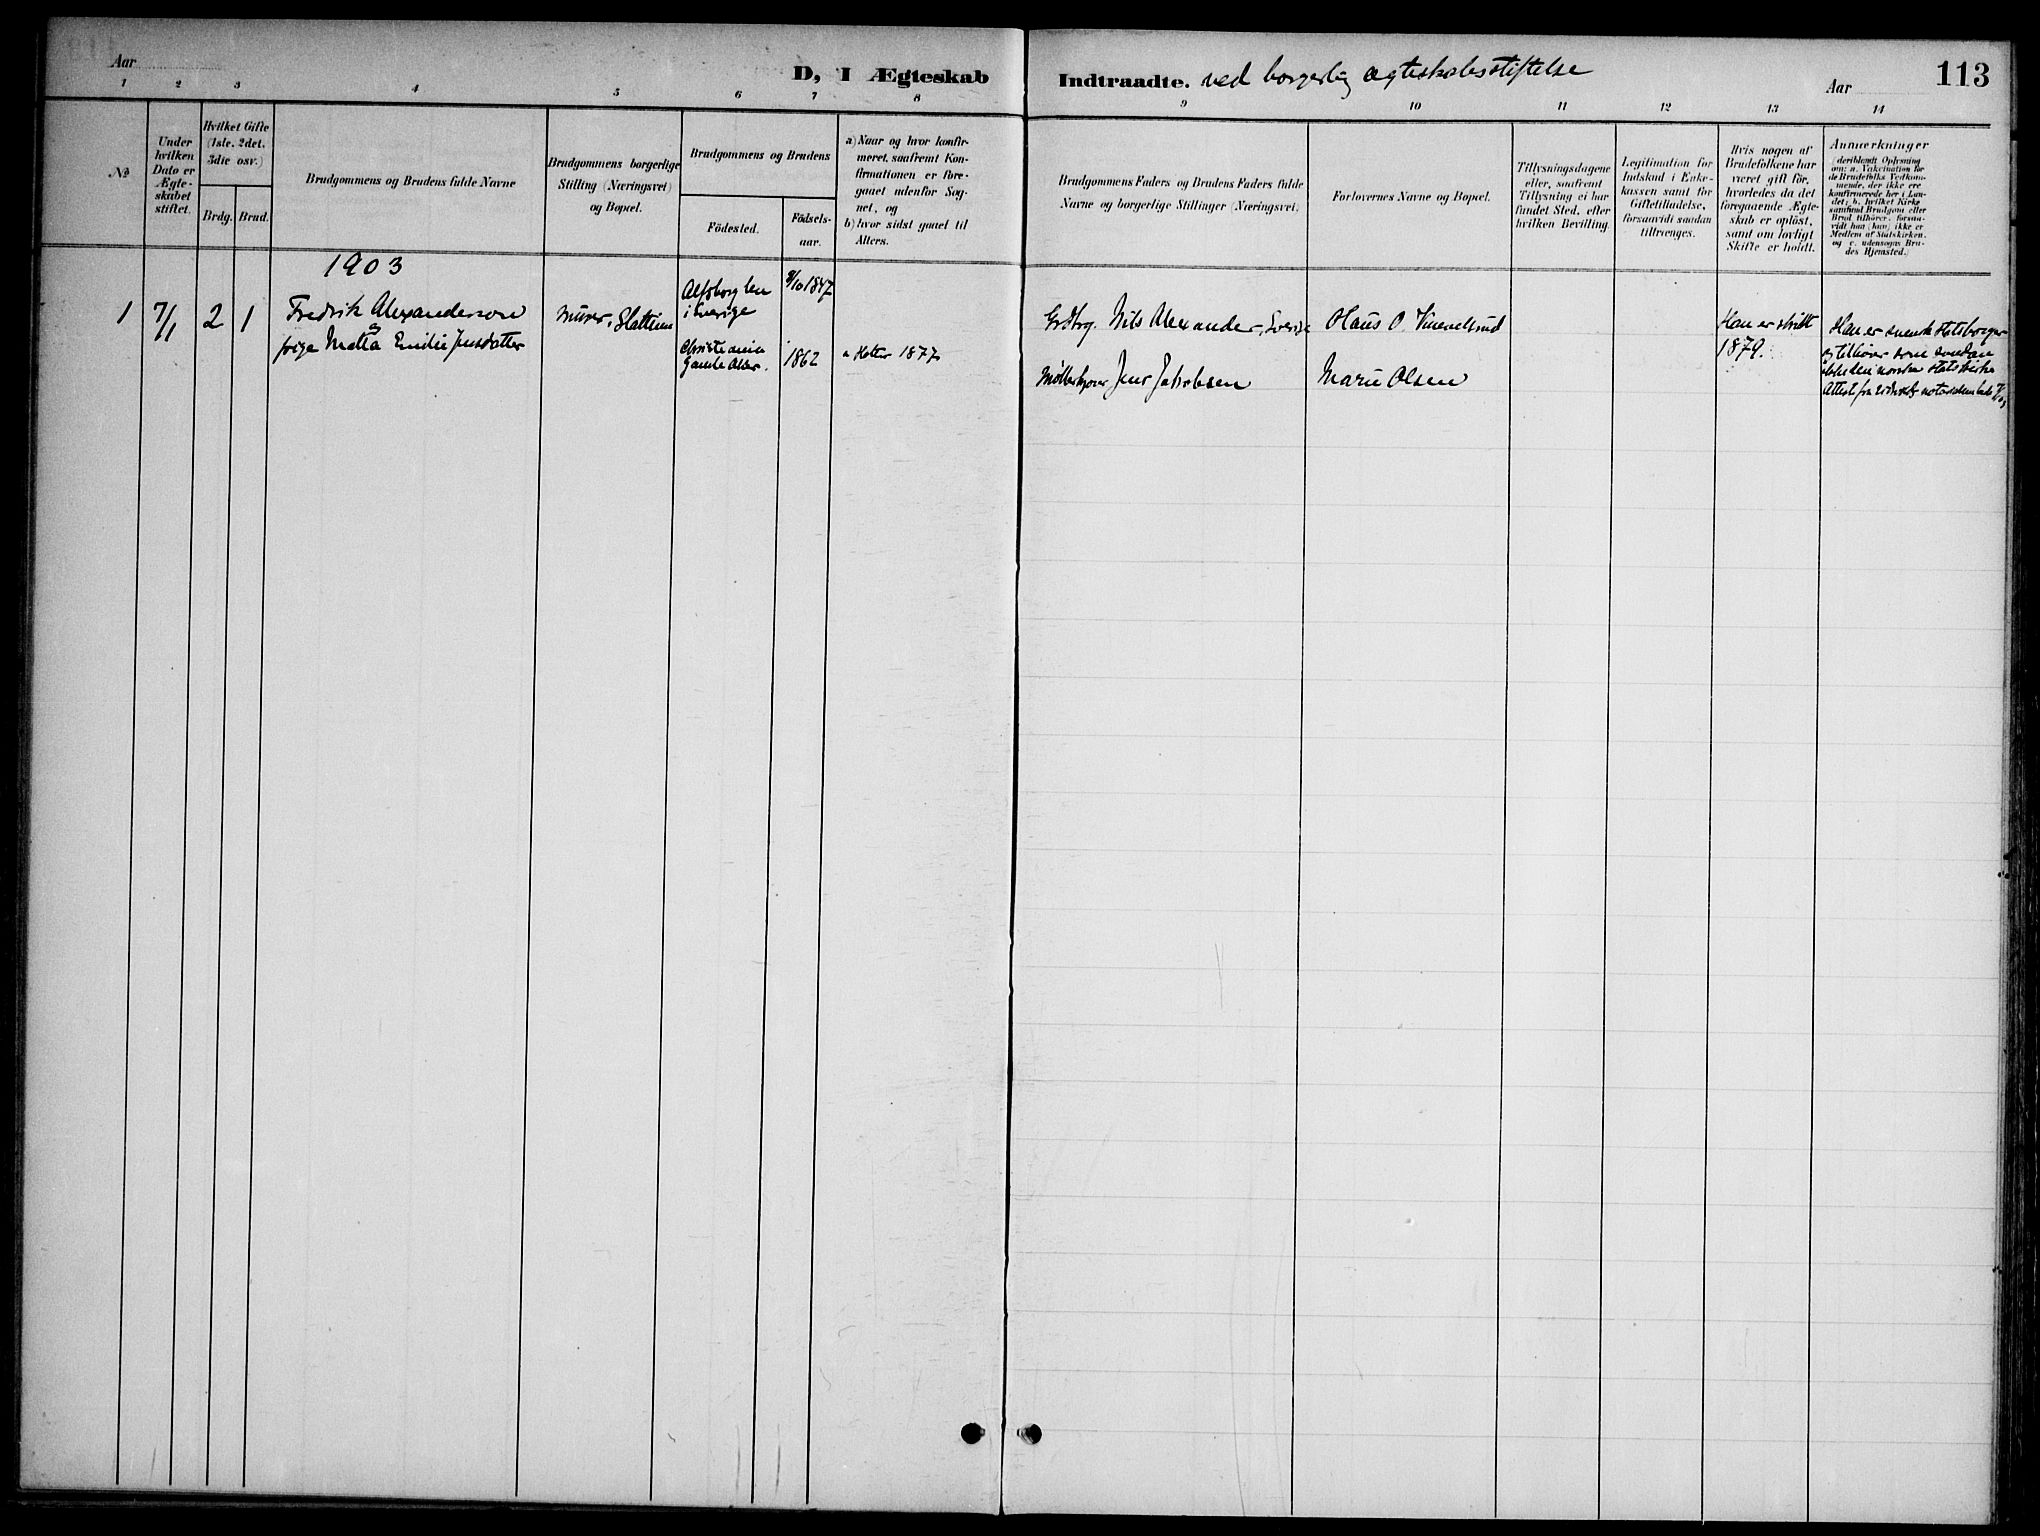 Aar
D, I Ægteskab
Indtraadte. ved borgerlig ægteskabsstiftelse
Aar
113
1 2 3 4 5 6 7 8 9 10 11 12 13 14
No
Under
hvilken
Dato er
Ægte-
skabet
stiftet.
Hvilket Gifte
(1ste, 2det,
3die osv.)
Brdg. Brud.
Brudgommens og Brudens fulde Navne
Brudgommens borgerlige
Stilling (Næringsvei)
og Bopæl.
Brudgommens og Brudens
Födested.
Födsels-
aar.
a) Naar og hvor konfir-
meret, saafremt Kon-
firmationen er fore-
gaaet udenfor Sog-
net, og
b) hvor sidst gaaet til
Alters.
Brudgommens Faders og Brudens Faders fulde
Navne og borgerlige Stillinger (Næringsvei)
Forlovernes Navne og Bopæl.
Tillysningsdagene
eller, saafremt
Tillysning ei har
fundet Sted, efter
hvilken Bevilling.
Legitimation for
Indskud i Enke-
kassen samt for
Giftetilladelse,
forsaavidt saadan
tiltrænges.
Hvis nogen af
Brudefolkene har
været gift før,
hvorledes da det
foregaaende Ægte-
skab er oplöst,
samt om lovligt
Skifte er holdt.
Anmærkninger
(deriblandt Oplysning
om: a. Vakcination for
de Brudefolks Vedkom-
mende, der ikke ere
konfirmerede her i Lan-
det; b. hvilket Kirke
samfund Brudgom eller
Brud tilhører, forsaa-
vidt han (hun) ikke er
Medlem af Statskirken,
og c. udensogns Bru-
des Hjemsted.)
1903
1 7/1 2 1
Fredrik Alexanderson
pige Matea Emilie Jensdatter
Murer, Slattum
Alfsborg len
i Sverige
9/10 1847
Christiania
Gamle Aker.
1862
a Hetter 1877
Grdbrg. Nils Alexander, Sverige
Møllerbygger Jens Jakobsen
Olaus O.
Marie Olsen
Han er skilt
1879.
Han er svensk statsborger
og tilhører som saadan
ikke den norske statskirke
Attest fra